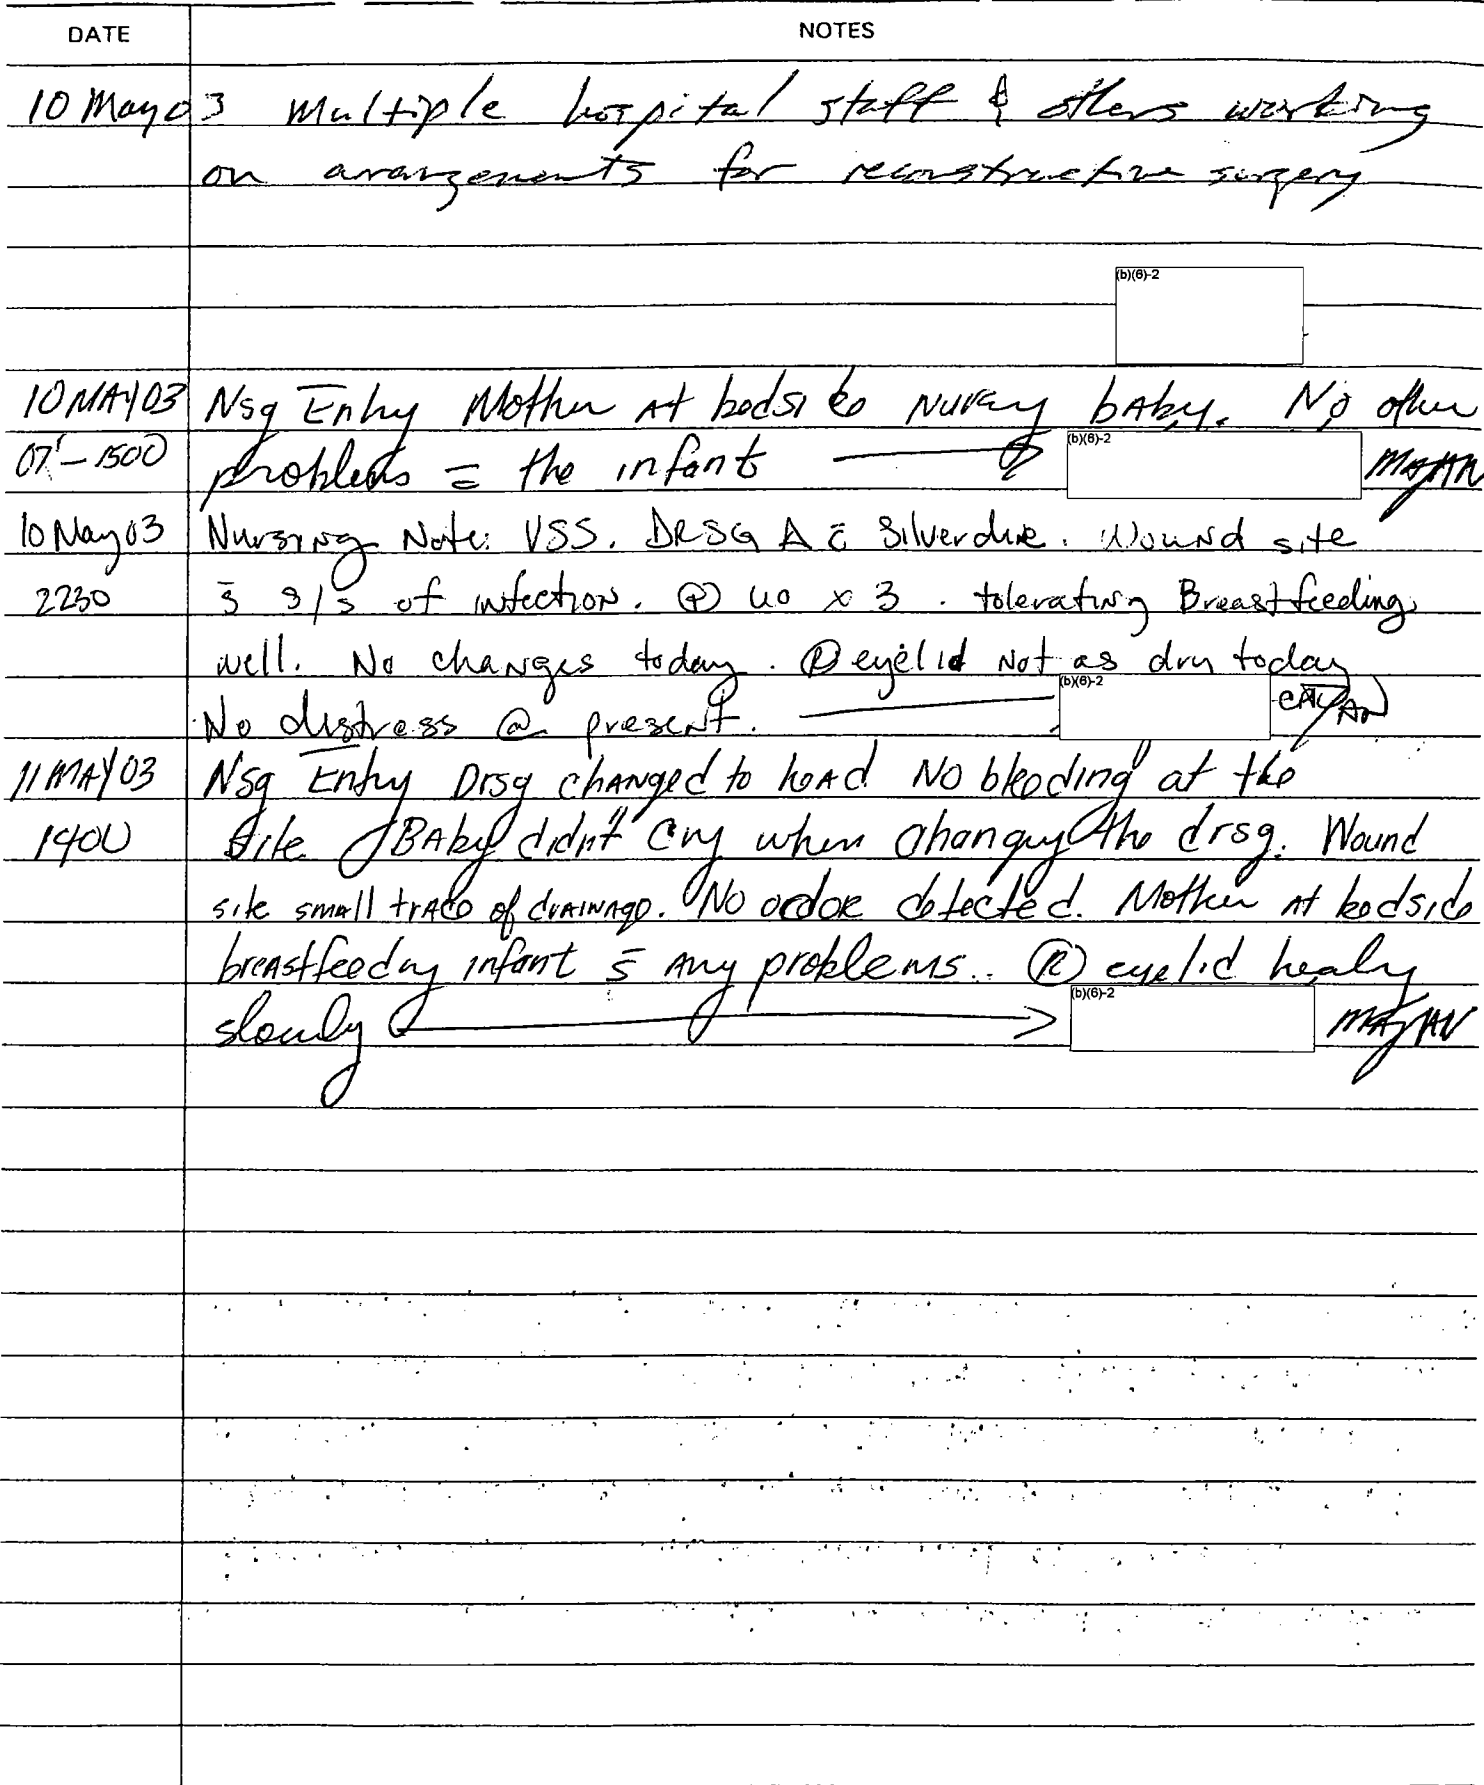 DATE NOTES
10 May 03 Multiple hospital staff & others working
on arrangements for reconstructive surgery
(b)(6)-2
10 MAY 03 Nsg Entry Mother At bedside Nursing bAby. No other
07 - 1500 problems c̄ the infant (b)(6)-2 MAJ AN
10 May 03 Nursing Note: VSS. DRSG Δ c̄ Silverdine. Wound site
2230 s̄ s/s of infection. ⊕ uo x 3. tolerating Breastfeeding
well. No changes today. Ⓡ eyelid Not as dry today
No distress @ present. (b)(6)-2 AN
11 MAY 03 Nsg Entry Drsg changed to head No bleeding at the
1400 Site. BAby didn't Cry when changing the drsg. Wound
site small trace of drainage. No odor detected. Mother At bedside
breastfeeding infant s̄ Any problems. Ⓡ eyelid healing
slowly (b)(6)-2 MAJ AN